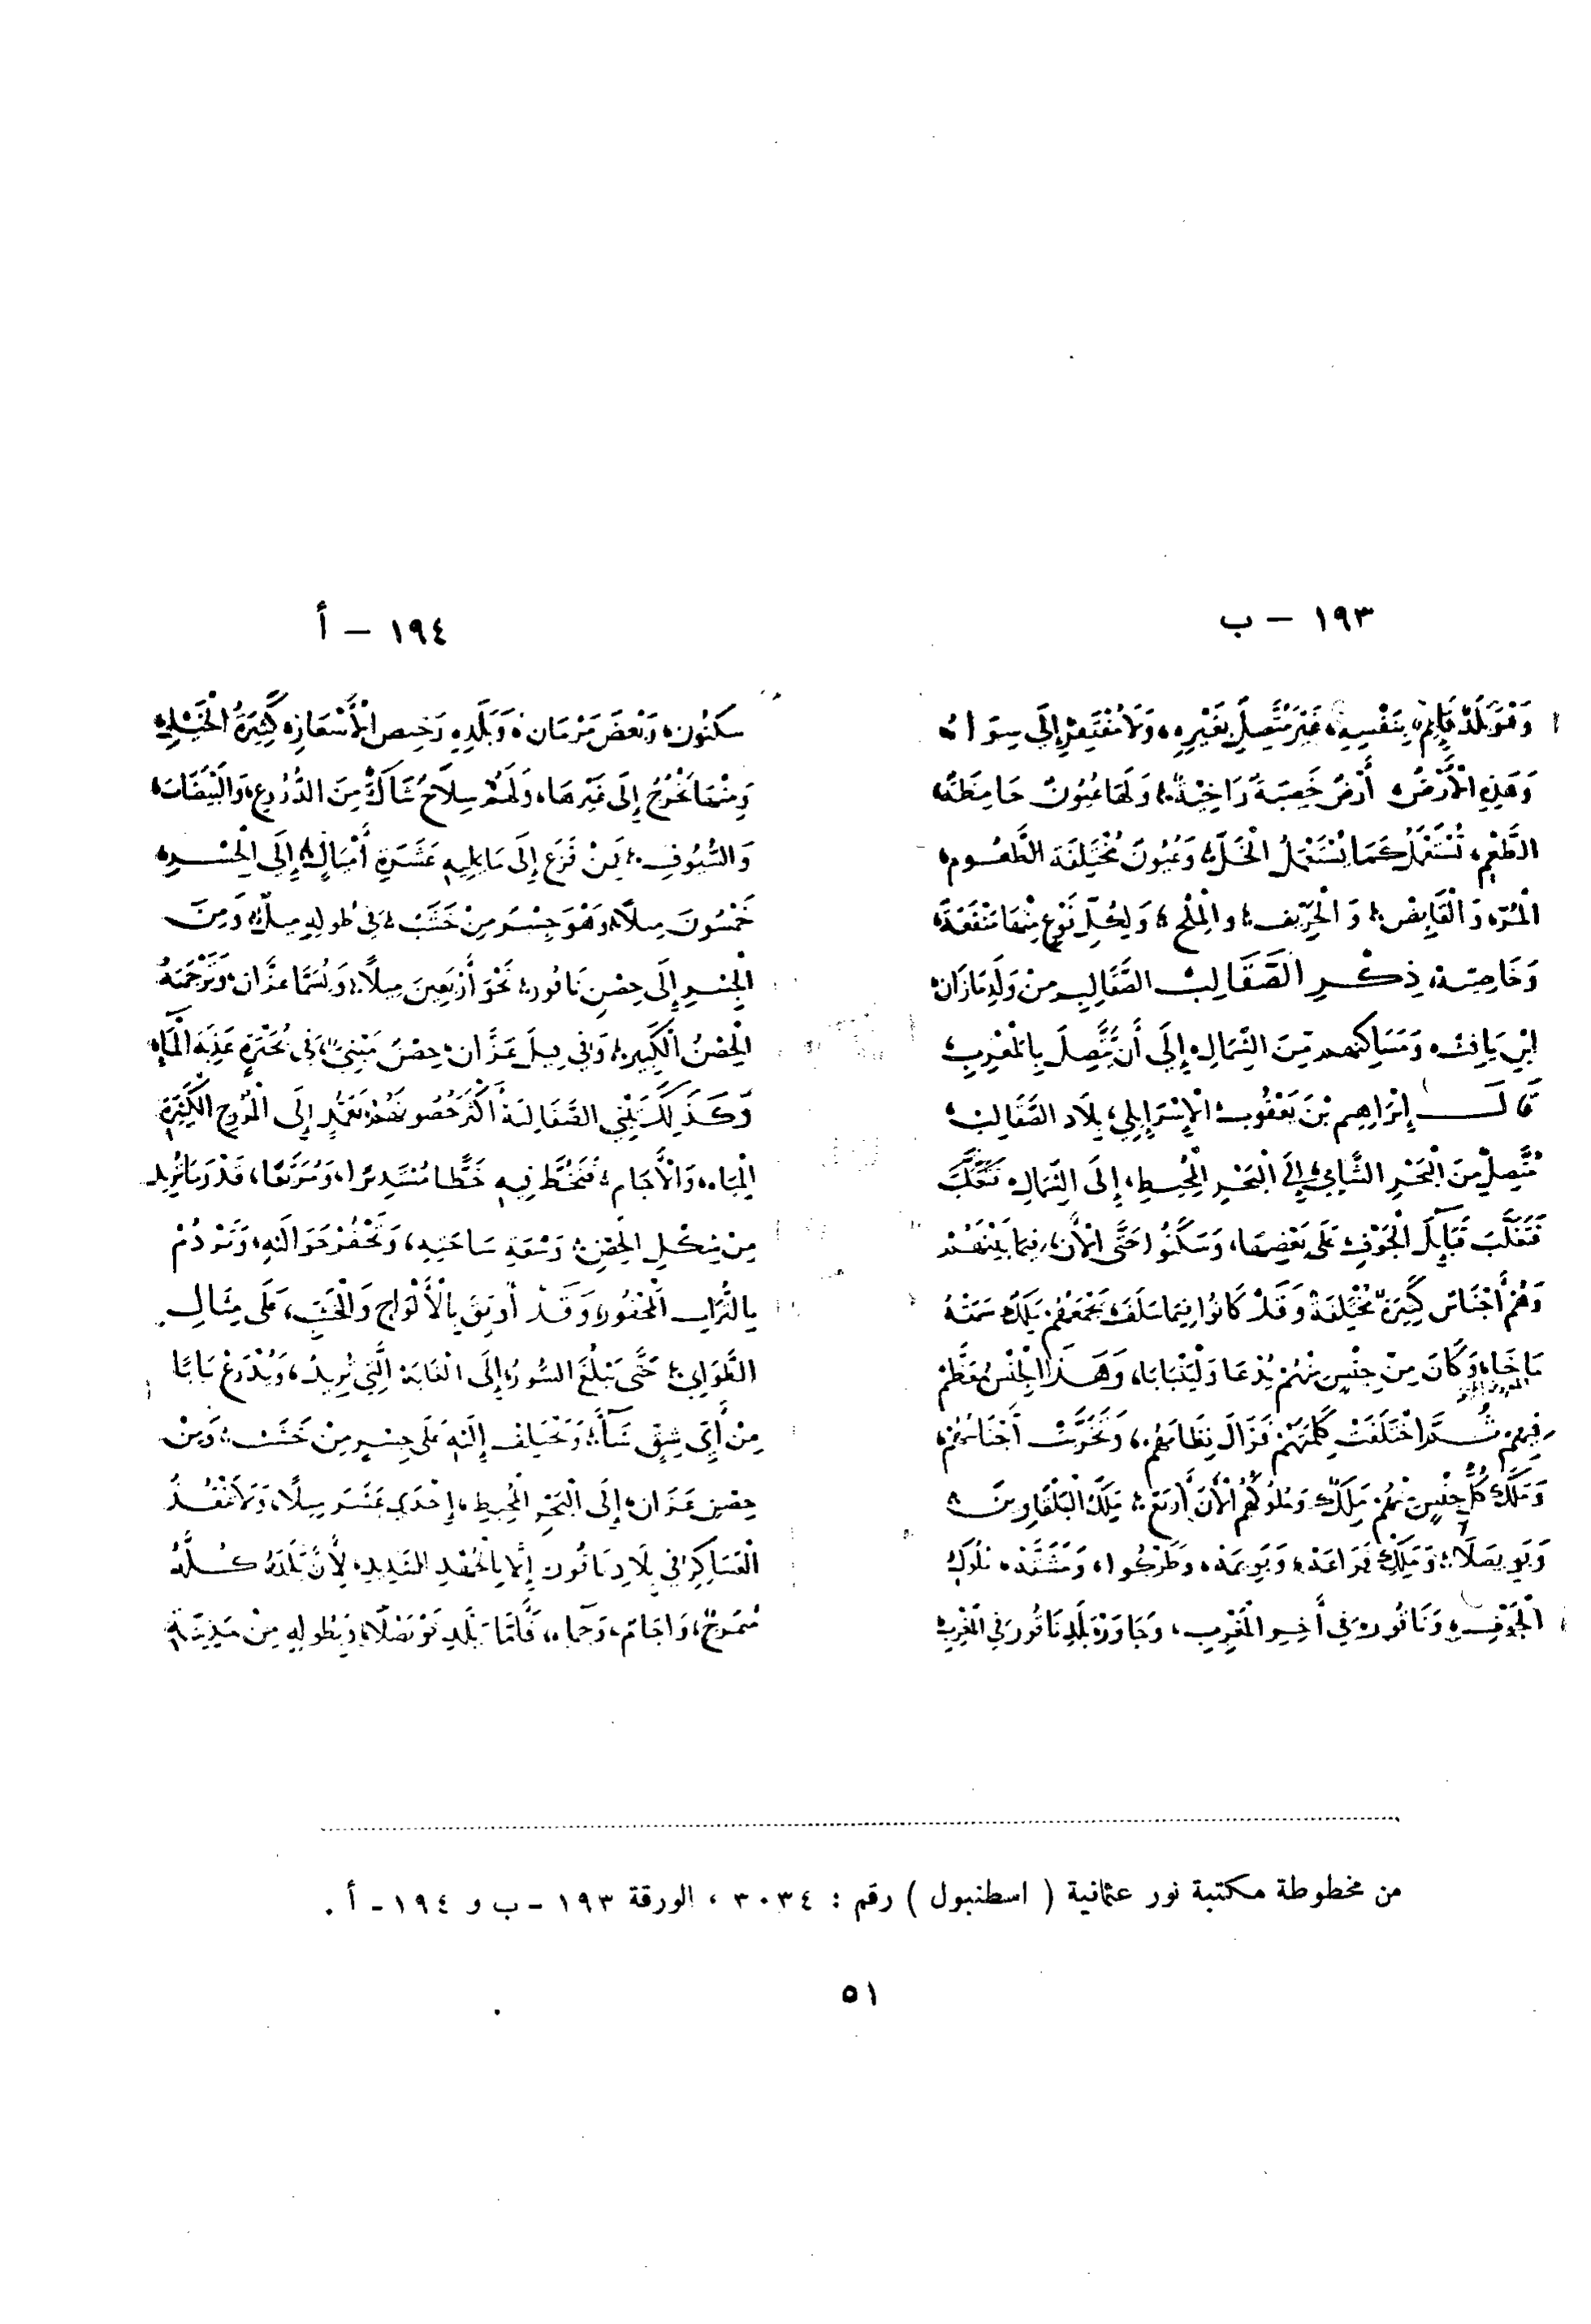 ١٩٣ – ب
وَهُوَ بَلَدٌ قَايِمٌ بِنَفْسِهِ، غَيْرَ مُتَّصِلٍ بِغَيْرِهِ، وَلَا مُفْتَقِرٍ إِلَى سِوَاهُ
وَهَذِهِ الْأَرْضُ أَرْضٌ خَصِبَةٌ رَاخِيَةٌ، وَلَهَا عُيُونٌ حَامِضَةُ
الطَّعْمِ، تُسْتَعْمَلُ كَمَا يُسْتَعْمَلُ الْخَلُّ، وَعُيُونٌ مُخْتَلِفَةُ الطُّعُومِ
الْمُرَّةِ وَالْقَابِضِ، وَالْحِرِّيفِ، والْمِلْحِ، وَلِكُلِّ نَوْعٍ مِنْهَا مَنْفَعَةٌ
وَخَاصِيَة، ذِكْرِ الصَّقَالِبَ الصَّقَالِبِ مِنْ وَلَدِ مَازَان
ابْنِ يَافِث، وَمَسَاكِنهم مِنَ الشِّمَالِ، إِلَى أَنْ يَتَّصِلَ بِالْمَغْرِبِ
قَالَ إِبْرَاهِيم بْنَ يَعْقُوب الْإِسْرَايِلِي، بِلَاد الصَّقَالِبَ
مُتَّصِلٌ مِنَ الْبَحْرِ الشَّامِي إِلَى الْبَحْرِ الْمُحِيطِ، إِلَى الشِّمَالِ
فَتَغَلَّبَ قَبَايِلُ الْجَوْفِ عَلَى بَعْضِهَا، وَسَكَنُوا حَتَّى الْأَن، فِيمَا بَيْنَهُمْ
وَهُمْ أَجْنَاسٌ كَثِيرَةٌ مُخْتَلِفَةٌ وَقَدْ كَانُوا فِيمَا سَلَفَ يَجْمَعُهُمْ مَلِكٌ سَمَتْهُ
مَاخَا، وَكَانَ مِنْ جِنْسٍ مِنْهُمْ يُدْعَا وَلِيتَبَابَا، وَهَذَا الْجِنْسُ مُعَظَّمٌ
فِيهِم ثُمَّ اخْتَلَفَتْ كَلِمَتُهُمْ فَزَالَ نِظَامُهُم، وَتَحَزَّبَتْ أَجْنَاسُهُمْ
وَمَلَّكَ كُلُّ جِنْسٍ مِنْهُمْ مَلِكٌ وَمُلُوكُهُمُ الْأَنَ أَرْبَعَ، مَلِكَ الْبُلْقَارِينَ
وَبَوِيصَلَا، وَمَلِكَ فَرَاغَة، وَبَوِيمَة، وَكَرْكُوا، وَمَشَقَّه مُلُوك
الْجَوْفِ وَنَاقُور، فِي أَخِيرِ الْمَغْرِبِ، وَجَاوَزَ بَلَدِ نَاقُور، فِي الْغَرْبِ
١٩٤ – أ
سكنُون، وَبَعْضَ مَرْمَان، وَبَلَدِهِ رَخِيص الْأَسْعَارِ، كَثِيرَةُ الْخَيْلِ،
وَمِنْهَا تَخْرُجُ إِلَى غَيْرِهَا، وَلَهُمْ سِلَاحٌ شَاكَةٌ مِنَ الدُّرُوعِ، وَالْبَيْضَات،
وَالسُّيُوفِ، مِنْ فَرَغ إِلَى مَايِلِيهِ عَشَرَةِ أَمْيَالٍ، إِلَى الْجِسْرِ،
خَمْسُونَ مِيلًا، وَهْوَ جِسْرٌ مِنْ خَشَبْ، فِي طُولِهِ مِيلٌ، وَمِنَ
الْجِسْرِ إِلَى حِصْنِ نَاقُور، نَحْوَ أَرْبَعِينَ مِيلًا، وَيُسَمَّا عزَّان، وَتَرْجَمَتهُ
الْحِصْنُ الْكَبِيرُ، وَفي قِبلَ عَزَّان، حِصْنٌ مَبْنِيٌّ، فِي بُحَيْرَةٍ عَذِبَةِ الْمَاءِ
وَكَذَلِكَ يَبْنِي الصَّقَالِبَةُ أَكْثَرَ حُصُونَهُمْ، تَعْمَدُ إِلَى الْمُرُوجِ الْكَثِيرَةِ
الْمِيَاه، وَالْأَجَامِ، فَتَخُطَّ فِيهِ خَطًّا مُسْتَدِيرًا، وَمُرَبَّعًا، قَدْرَ مَا تُرِيد
مِنْ شِكْلِ الْحِصْنِ، وَسْعَةِ سَاحَتِهِ، وَتَحْفُرْ حَوَالَيهِ، وَتَرْدُمْ
بِالتُّرَابِ الْمَحْفُورِ، وَقَدْ أُوثِقَ بِالْأَلْوَاحِ وَالْخَشَبِ، عَلَى مِثَالِ
الطَّوَابِي، حَتَّى يَبْلُغَ السُّورُ إِلَى الْغَايَةِ الَّتِي يُرِيدُ، وَيُذْرَعْ بَابًا
مِنْ أَيِّ شِقٍّ شَأَ، وَيَخْتَلِف إِلَيْهِ عَلَى جِسْرٍ مِنْ خَشَبٍ، وَمِنْ
حِصْنِ عَزَان، إِلَى الْبَحْرِ الْمُحِيطِ، إِحْدَى عَشَرَ مِيلًا، وَلَا تَنْفُذُ
الْعَسَاكِرُ فِي بِلَادِ نَاقُون إِلَّا بِالْجُهْدِ الشَّدِيدِ، لِأَنَّ بَلَدَهُ كُلَّهُ
مُمَرِجٌ، وَاجَامٌ، وَحمَاه، فَأَمَّا بَلَدِ بَوْيَصْلَا، فَطُولِهِ مِنْ مَدِينَةِ
من مخطوطة مكتبة نور عثمانية ( اسطنبول ) رقم : ٣٠٣٤ ، الورقة ١٩٣ – ب و ١٩٤ - أ .
٥١